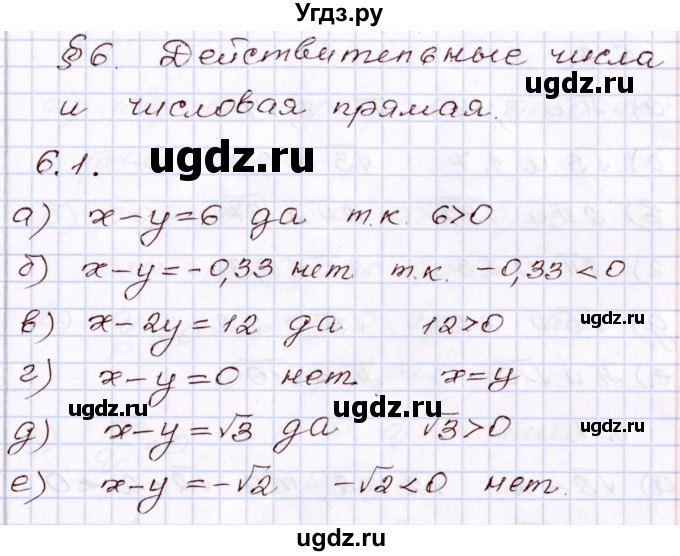 Угдз.ру
§6. Действительные числа
и числовая прямая.
ugdz.ru
6.1.
а) x-y=6 да т.к. 6>0
б) x-y=-0,33 нет т.к. -0,33<0
в) x-2y=12 да 12>0 ugdz.ru
г) x-y=0 нет. x=y
ugdz.ru ugdz.ru
д) x-y=√3 да √3>0
е) x-y=-√2 -√2<0 нет.
ugdz.ru ugdz.ru